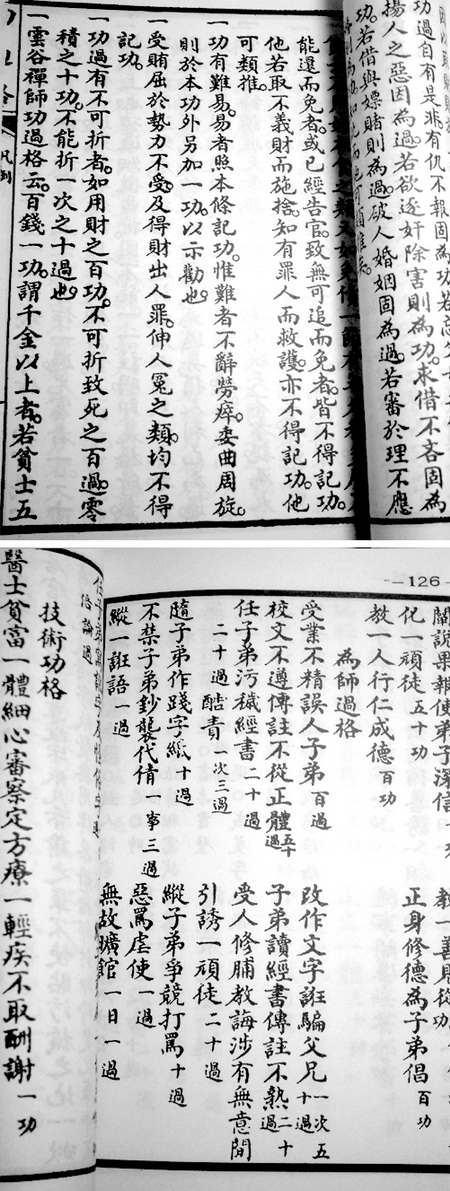 功過自有是非有仇不報固為功若
揚人之惡因為過若欲逐奸除害則為功。求借不吝固為
功。若借與嫖賭則為過。破人婚姻固為過。若審於理不應
能還而免者。或已經告官。致無可追而免者。皆不得記功。
他若取不義財而施捨。知有罪人而救護。亦不得記功。他
可類推。
一功有難易。易者照本條記功。惟難者不辭勞瘁。委曲周旋。
則於本功外另加一功。以示勸也。
一受賄屈於勢力不受。及得財出人罪。伸人冤之類。均不得
記功。
一功過有不可折者。如用財之百功。不可折致死之百過。零
積之十功。不能折一次之十過也。
一雲谷禪師功過格云。百錢一功。謂千金以上者。若貧士五
凡例
—126—
關說果報使弟子深信一功
化一頑徒 五十功
正身修德為子弟倡 百功
教一人行仁成德 百功
為師過格
受業不精誤人子弟 百過
改作文字誑騙父兄 一次五十過
校文不遵傳註不從正體 五十過
子弟讀經書傳註不熟 二十過
任子弟污穢經書 二十過
受人修脯教誨涉有無意間
二十過 酷責 次三過
引誘一頑徒 二十過
隨子弟作踐字紙 十過
縱子弟爭競打罵 十過
不禁子弟鈔襲代倩 一事三過
惡罵虐使 一過
縱一誑語 一過
無故曠館 一日一過
倍論過
技術功格
醫士貧富一體細心審察定方療一輕疾不取酬謝 一功